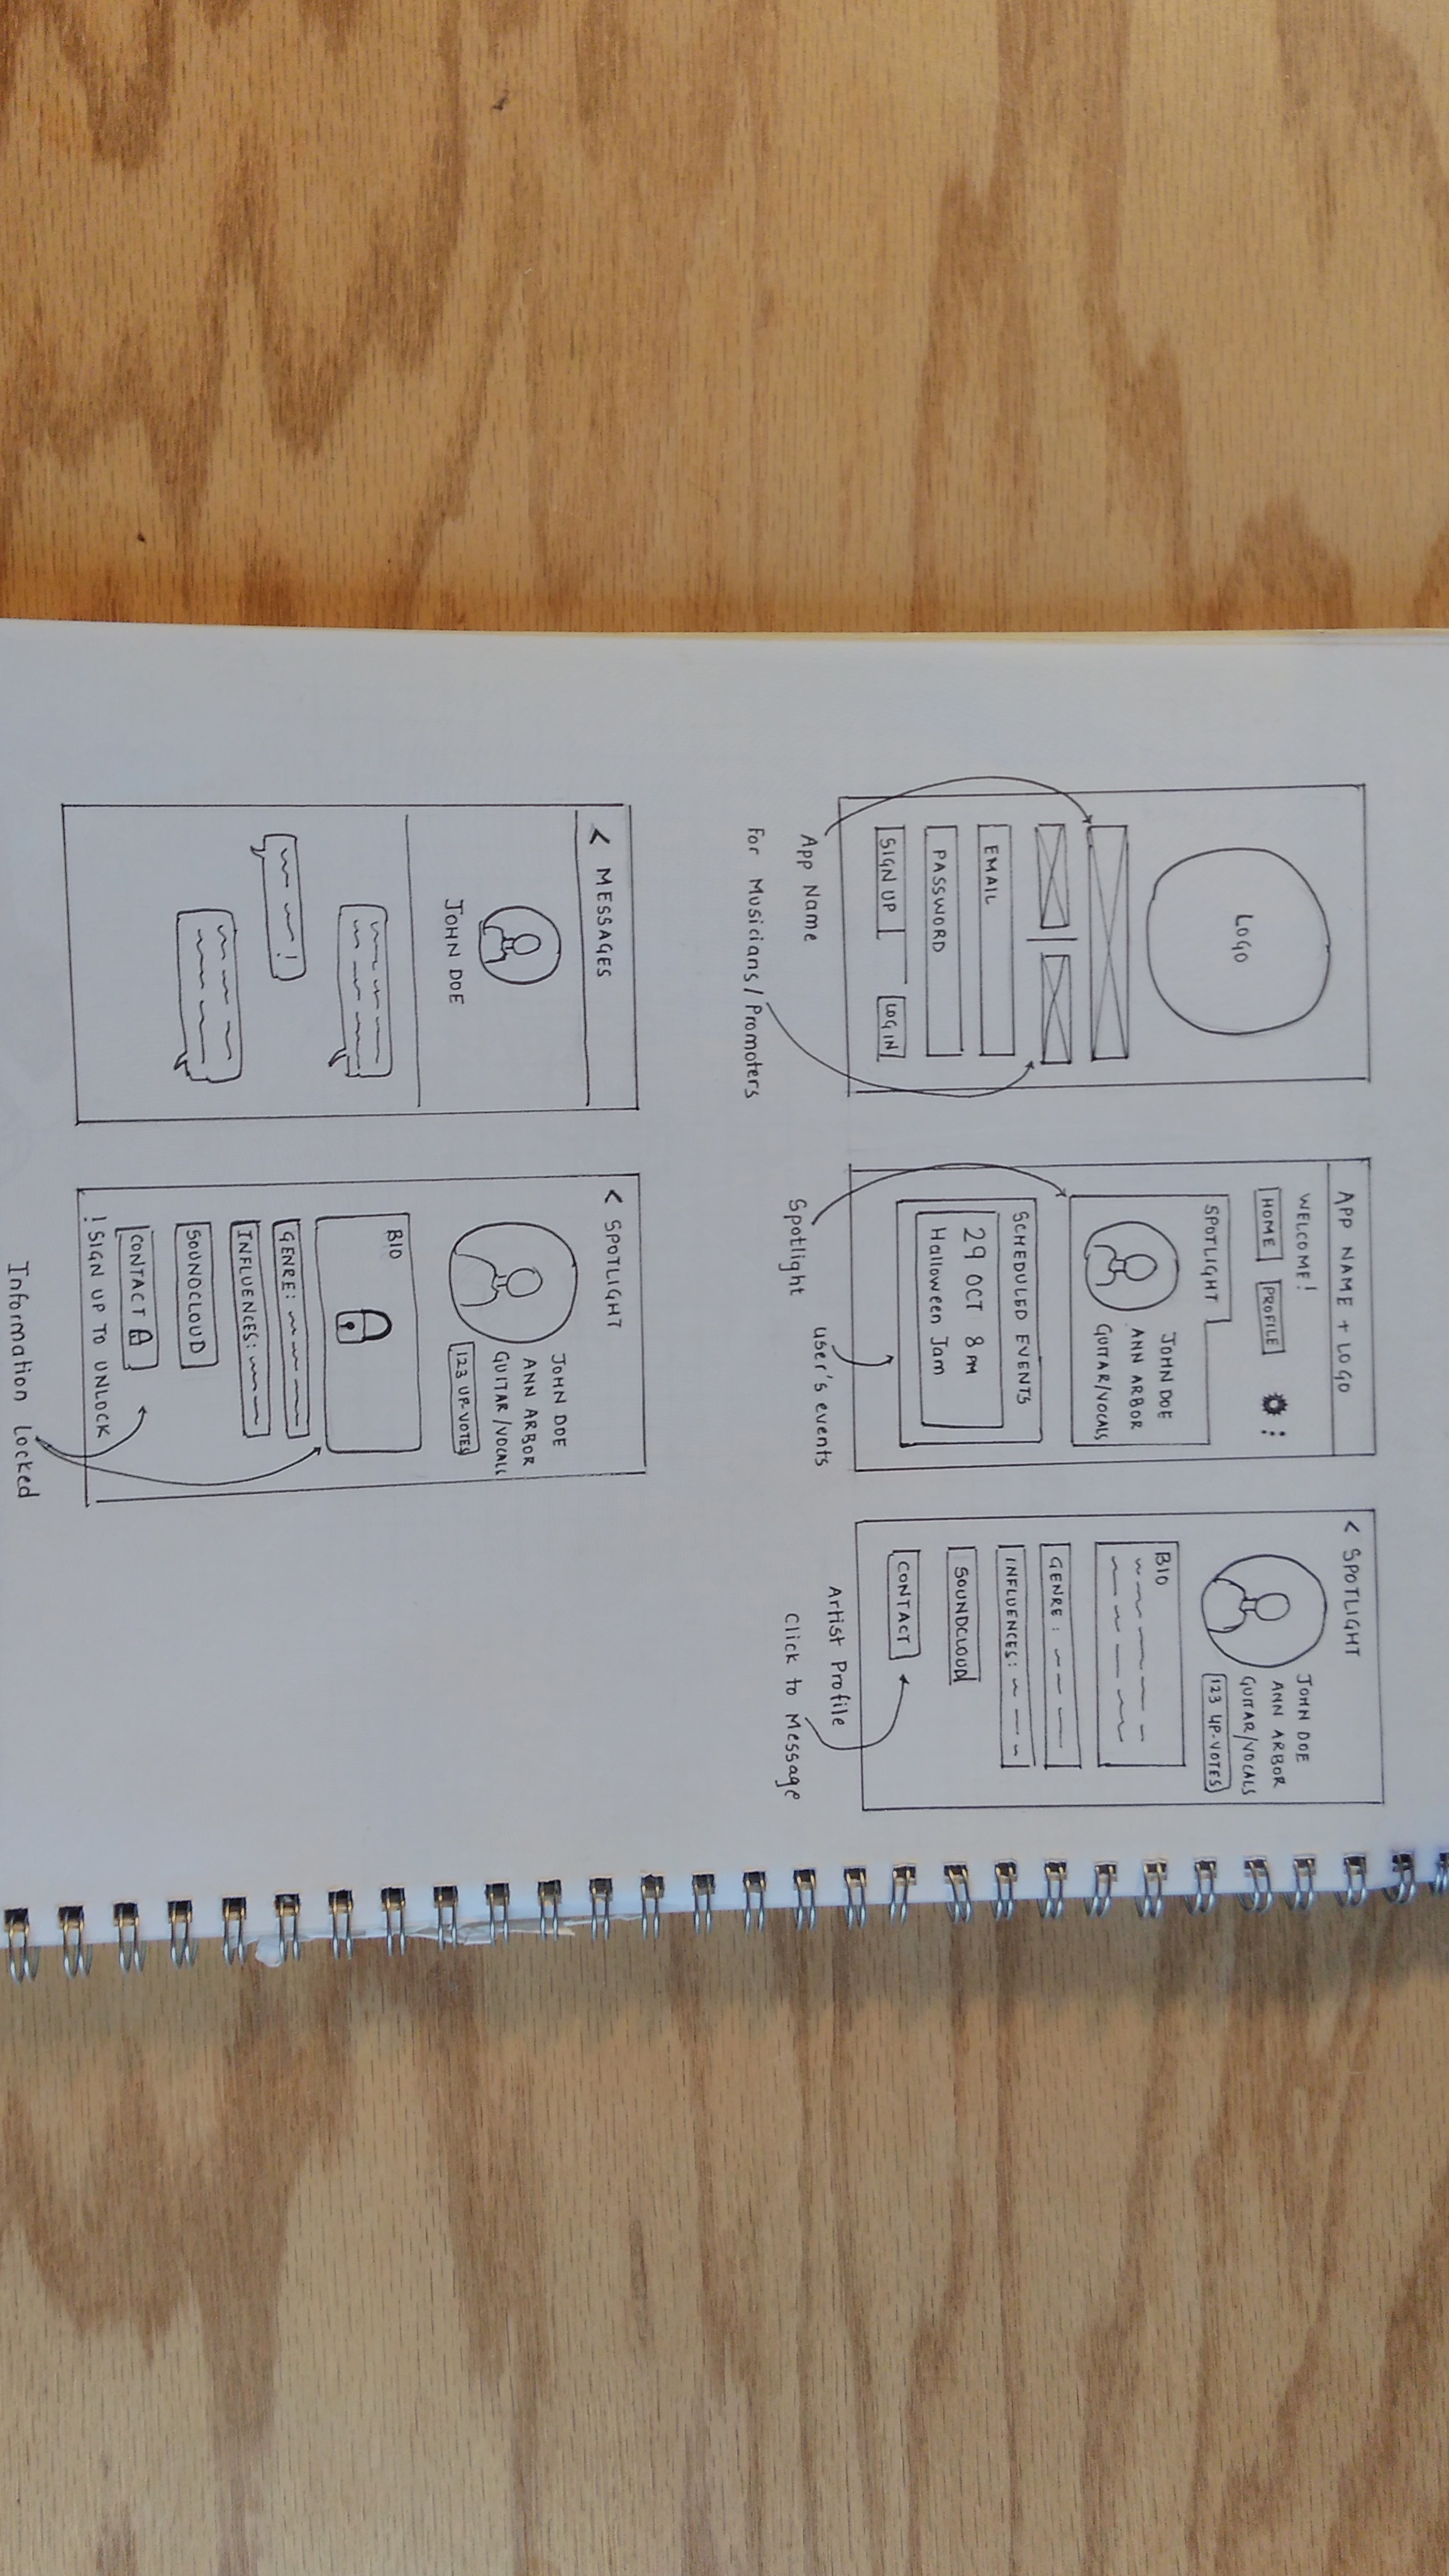 LOGO
EMAIL
PASSWORD
SIGN UP
LOGIN
App Name
For Musicians/Promoters
APP NAME + LOGO
WELCOME!
HOME
PROFILE
SPOTLIGHT
JOHN DOE
ANN ARBOR
GUITAR/VOCALS
SCHEDULED EVENTS
29 OCT 8 PM
Halloween Jam
Spotlight
user's events
< SPOTLIGHT
JOHN DOE
ANN ARBOR
GUITAR/VOCALS
123 UP-VOTES
BIO
GENRE:
INFLUENCES:
SOUNDCLOUD
CONTACT
Artist Profile
Click to Message
< MESSAGES
JOHN DOE
!
< SPOTLIGHT
JOHN DOE
ANN ARBOR
GUITAR/VOCALS
123 UP-VOTES
BIO
GENRE:
INFLUENCES:
SOUNDCLOUD
CONTACT
! SIGN UP TO UNLOCK
Information Locked